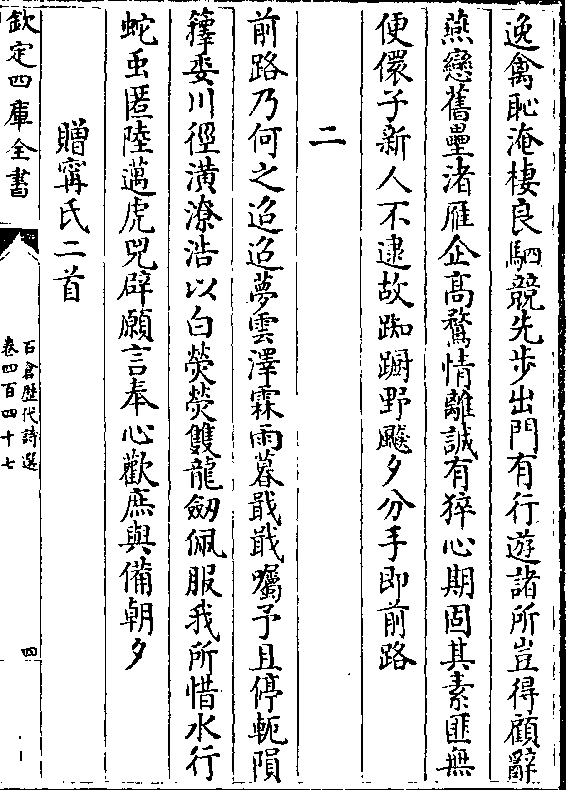 逸禽恥淹棲良駟競先步出門有行遊諸所豈得顧辭
燕戀舊壘渚雁企高騖情離誠有猝心期固其素匪無
便儇子新人不逮故踟蹰野飈夕分手即前路
二
前路乃何之迢迢夢雲澤霖雨暮戢戢囑予且停軛隕
籜委川徑潢潦浩以白熒熒雙龍劒佩服我所惜水行
蛇䖝匿陸邁虎兕辟願言奉心歡庶與備朝夕
贈甯氏二首
欽定四庫全書
石倉歴代詩選
卷四百四十七
四